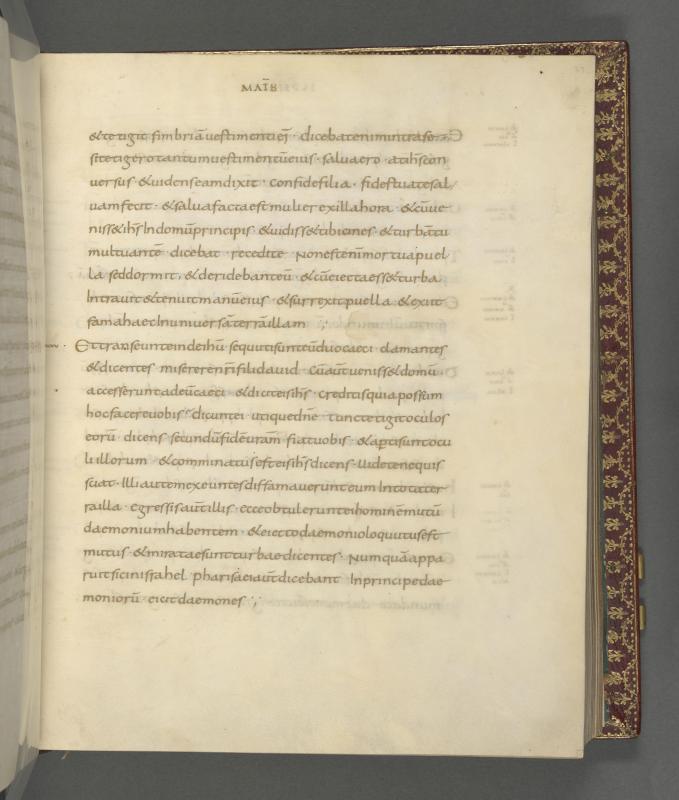 MAT̄B
&tetigit fimbriā uestimenti eī · dicebat enim intra se
si tetigero tantum uestimentū eius · salua ero · at ih̄s con
uersus · &uidens eam dixit · confide filia · fides tua te sal
uam fecit · &salua facta est mulier ex illa hora · &cū ue
niss& ih̄s In domū principis · &uidiss& tibicines · &turbā tu
multuantē dicebat · recedite Non est enī mortua puel
la sed dormit, &deridebant eū · &cū eiecta ess& turba.
Intrauit &tenuit manū eius · &surrexit puella · &exiit
fama haec In uniuersā terrā illam ·,·
Et transeunte inde ihū secuti sunt eū duo caeci clamantes
&dicentes miserere nr̄i fili dauid cū aut̄ueniss& domū ·
accesserunt ad eū caeci &dicit eis ih̄s · creditis quia possum
hoc facere uobis dicunt ei utique dn̄e tunc tetigit oculos
eorū dicens secundū fidē ur̄am fiat uobis &aperti sunt ocu
li illorum · &comminatus est eis ih̄s dicens Uidete ne quis
sciat · Illi autem exeuntes diffamauerunt eum In tota ter
ra illa · egressis aut̄ illis ecce obtulerunt ei hominē mutū
daemonium habentem · &eiecto daemonio locutus est
mutus &miratae sunt turbae dicentes · Numquā appa
ruit sic in israhel pharisaei aut̄ dicebant In principe dae
moniorū eicit daemones ·,·